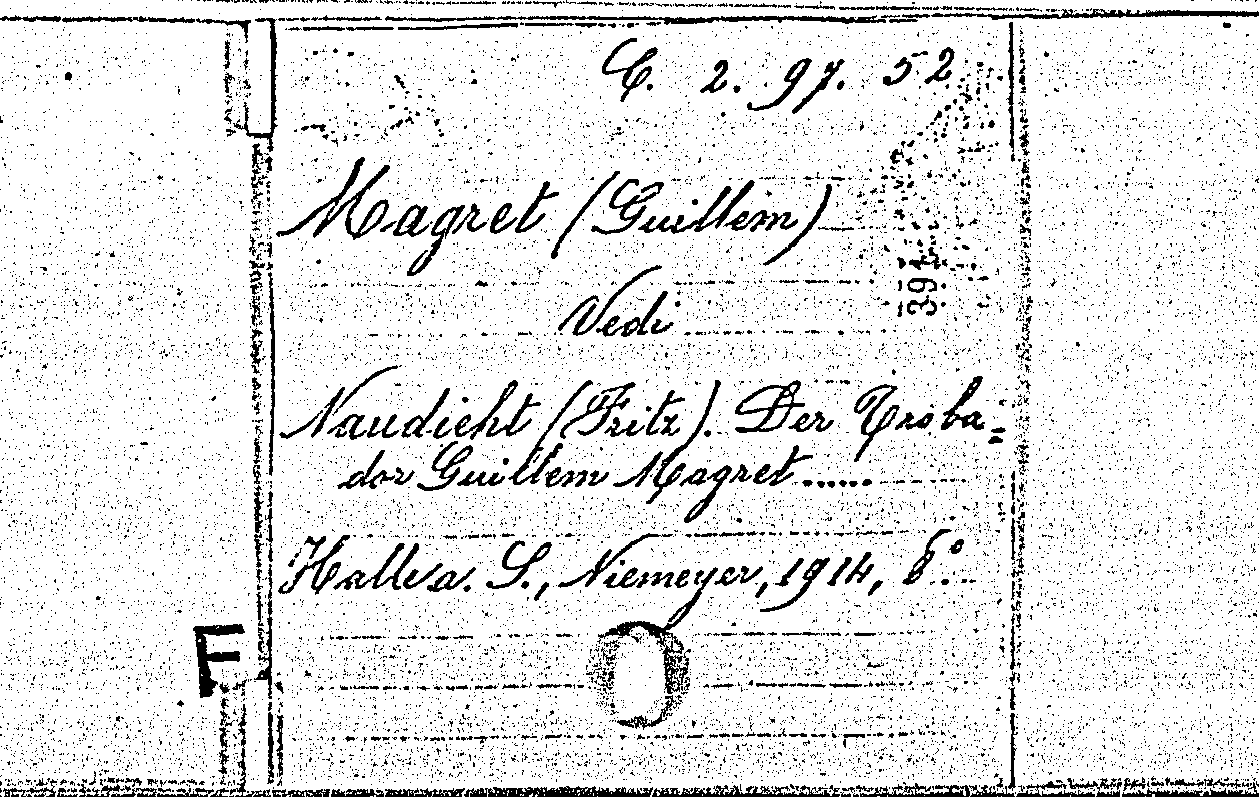 C. 2. 97. 52
Magret (Guillem)
Vedi
Naudieht (Fritz). Der Troba=
dor Guillem Magret ......
Halle a. S., Niemeyer, 1914, 8°.
F